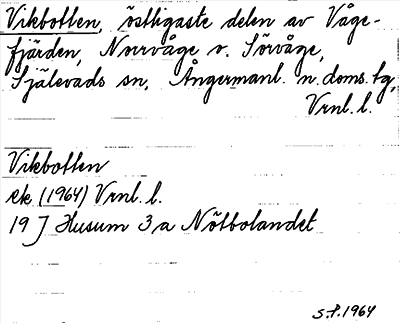 Vikbotten, östligaste delen av Våge-
fjärden, Norrvåge o. Sörvåge,
Själevads sn, Ångermanl. n. doms. tg,
Vrnl. l.
Vikbotten
ek (1964) Vrnl. l.
19 J Husum 3 a Nötbolandet
S.F. 1964